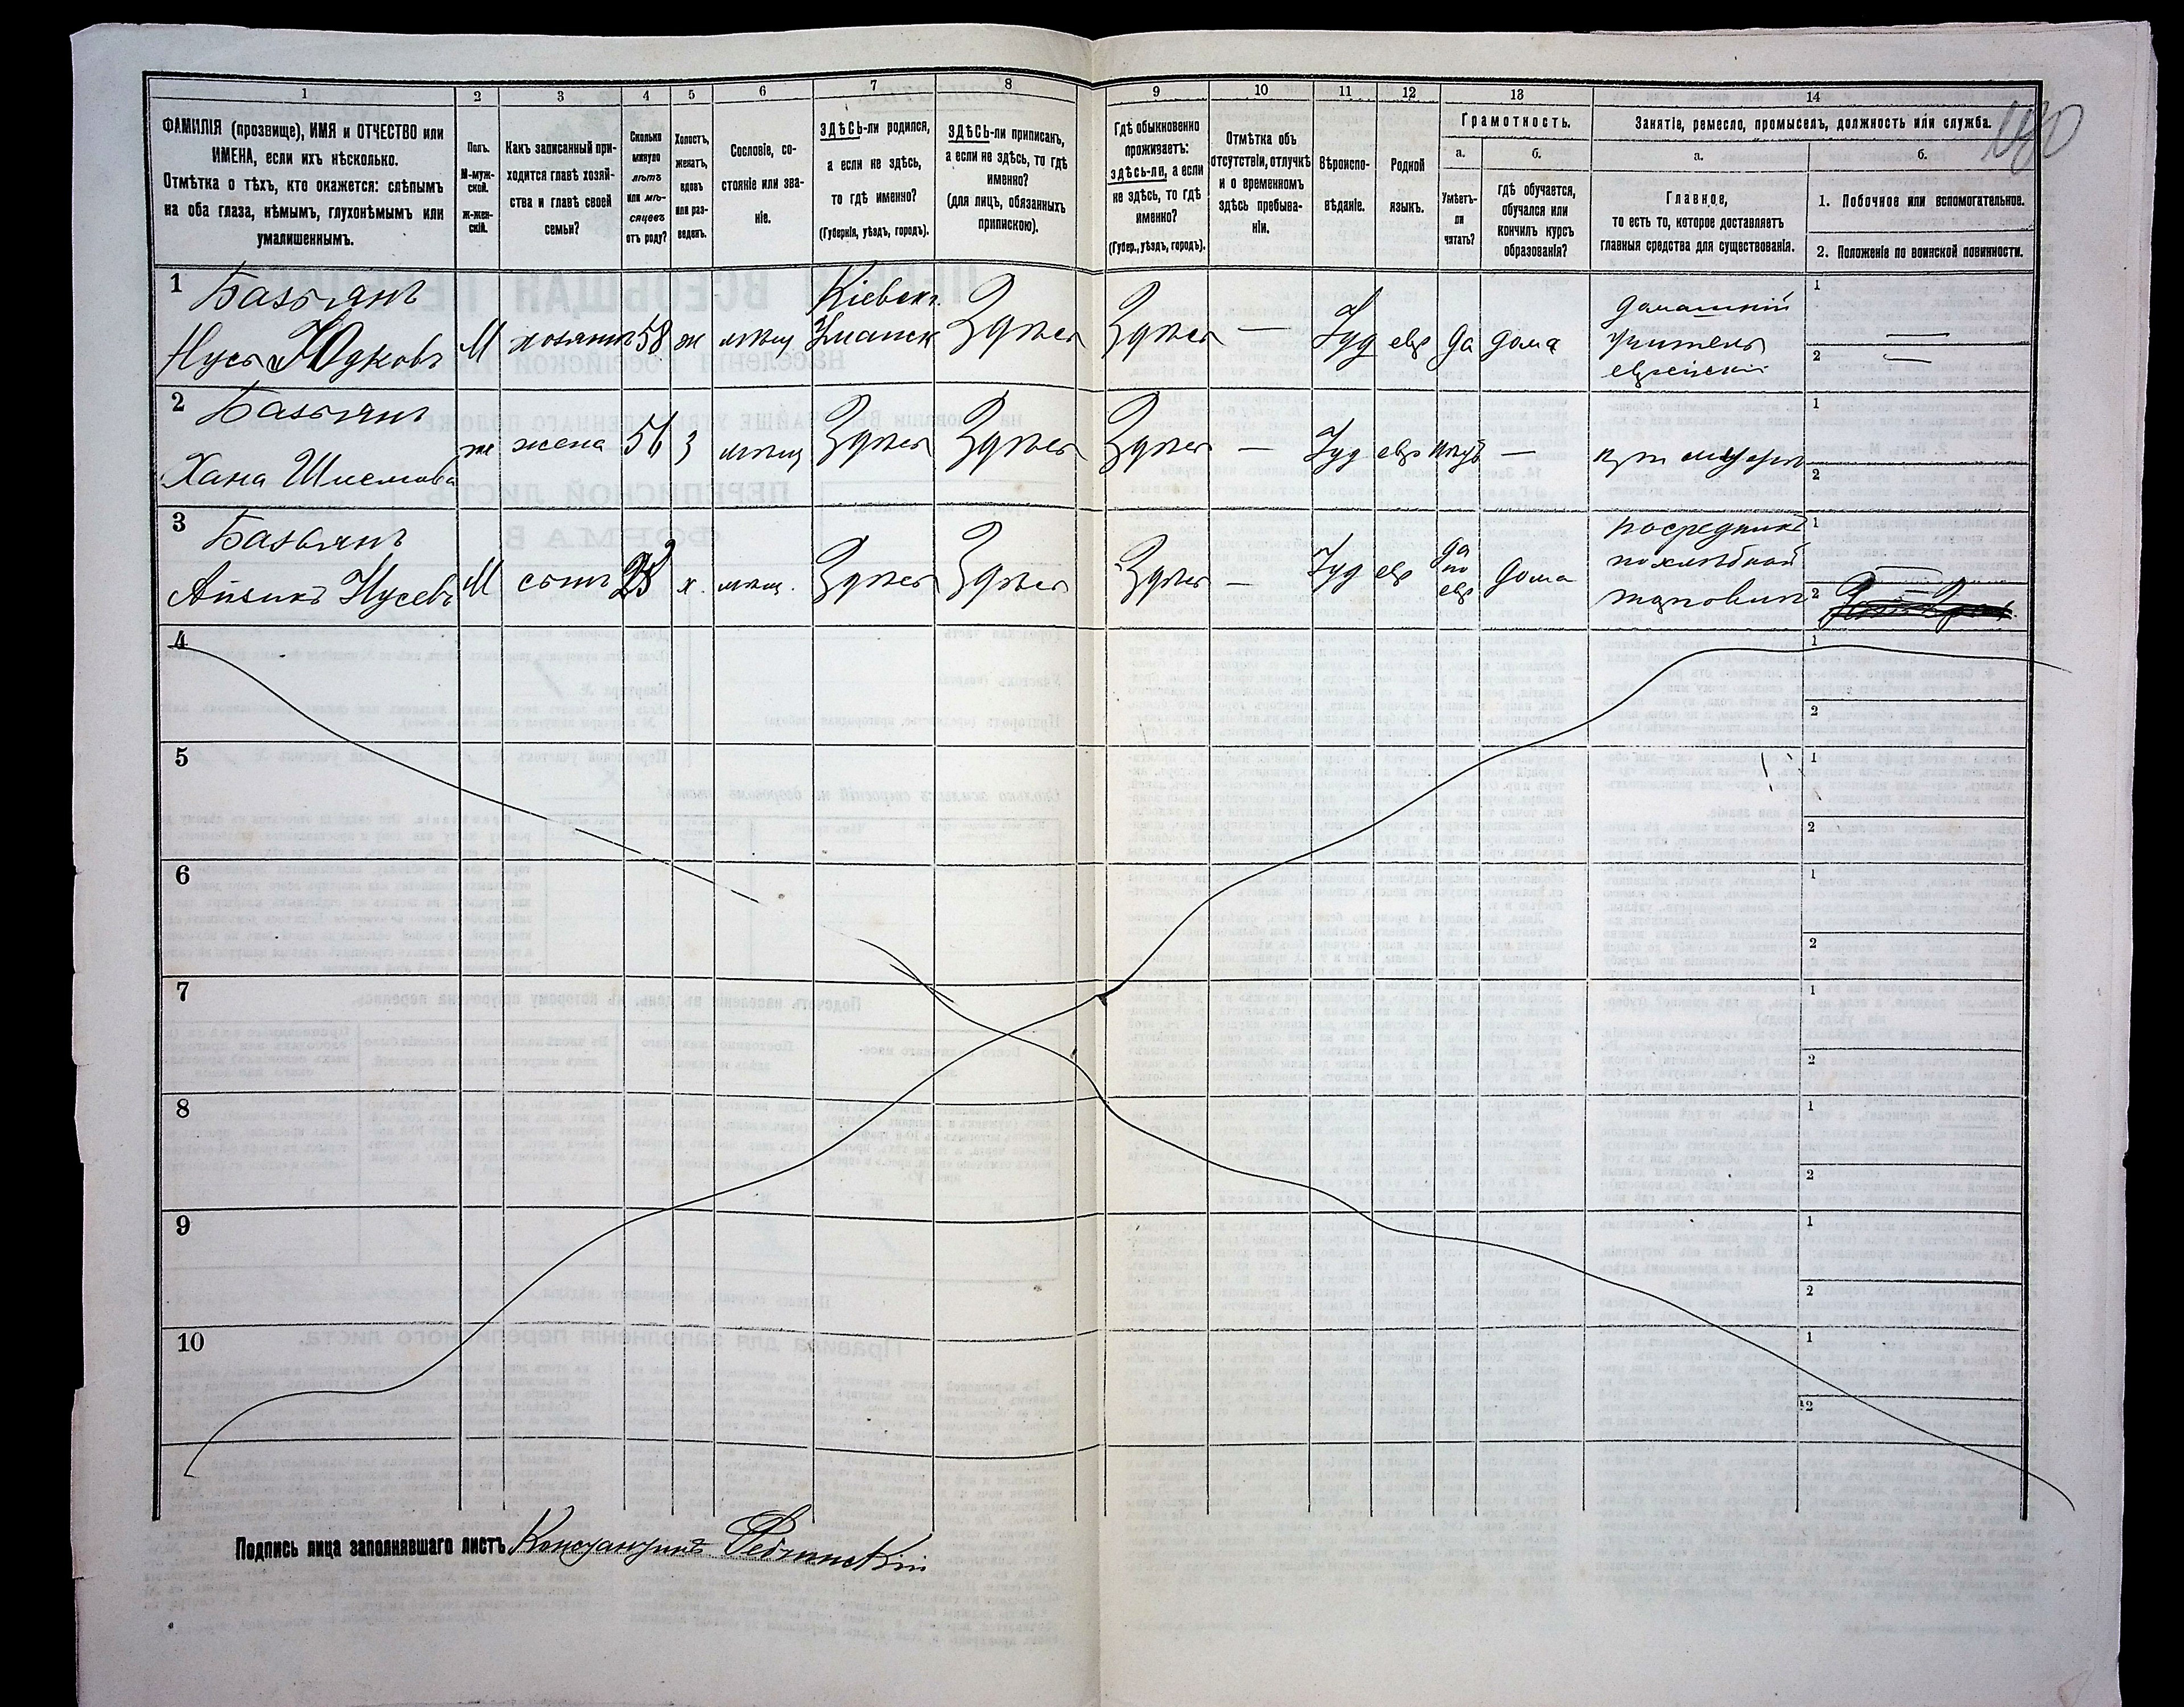 180
1
2
3
4
5
6
7
8
9
10
11
12
13
14
ФАМИЛІЯ (прозвище), ИМЯ и ОТЧЕСТВО или
ИМЕНА, если ихъ нѣсколько.
Отмѣтка о тѣхъ, кто окажется: слѣпымъ
на оба глаза, нѣмымъ, глухонѣмымъ или
умалишеннымъ.
Полъ.
М-муж-
ской.
Ж-жен-
скій.
Какъ записанный при-
ходится главѣ хозяй-
ства и главѣ своей
семьи?
Сколько
минуло
лѣтъ
или мѣ-
сяцевъ
отъ роду?
Холостъ,
женатъ,
вдовъ
или раз-
веденъ.
Сословіе, со-
стояніе или зва-
ніе.
ЗДѢСЬ-ли родился,
а если не здѣсь,
то гдѣ именно?
(Губернія, уѣздъ, городъ).
ЗДѢСЬ-ли приписанъ,
а если не здѣсь, то гдѣ
именно?
(для лицъ, обязанныхъ
припискою).
Гдѣ обыкновенно
проживаетъ:
здѣсь-ли, а если
не здѣсь, то гдѣ
именно?
(Губер., уѣздъ, городъ).
Отмѣтка объ
отсутствіи, отлучкѣ
и о временномъ
здѣсь пребыва-
ніи.
Вѣроиспо-
вѣданіе.
Родной
языкъ.
Грамотность.
а.
Умѣетъ-
ли
читать?
б.
гдѣ обучается,
обучался или
кончилъ курсъ
образованія?
Занятіе, ремесло, промыселъ, должность или служба.
а.
Главное,
то есть то, которое доставляетъ
главныя средства для существованія.
б.
1. Побочное или вспомогательное.
2. Положеніе по воинской повинности.
1 Базьянъ
Нусь Юдковъ
М
хозяинъ
58
ж
мѣщ
Кіевск.
Уманск
Здѣсь
Здѣсь
—
Іуд
евр
да
дома
домашній
учитель
еврейскій
1 —
2 —
2 Базьянъ
Хана Шлемова
ж
жена
56
з
мѣщ
Здѣсь
Здѣсь
Здѣсь
—
Іуд
евр
—
при
1
2
3 Базьянъ
Айзикъ Нусевъ
М
сынъ
х.
мѣщ.
Здѣсь
Здѣсь
Здѣсь
—
Іуд
евр
да
по
евр
дома
посредникъ
по хлѣбной
торговлѣ
1 —
2
4
1
2
5
1
2
6
1
2
7
1
2
8
1
2
9
1
2
10
1
2
Подпись лица заполнявшаго листъ Константинъ